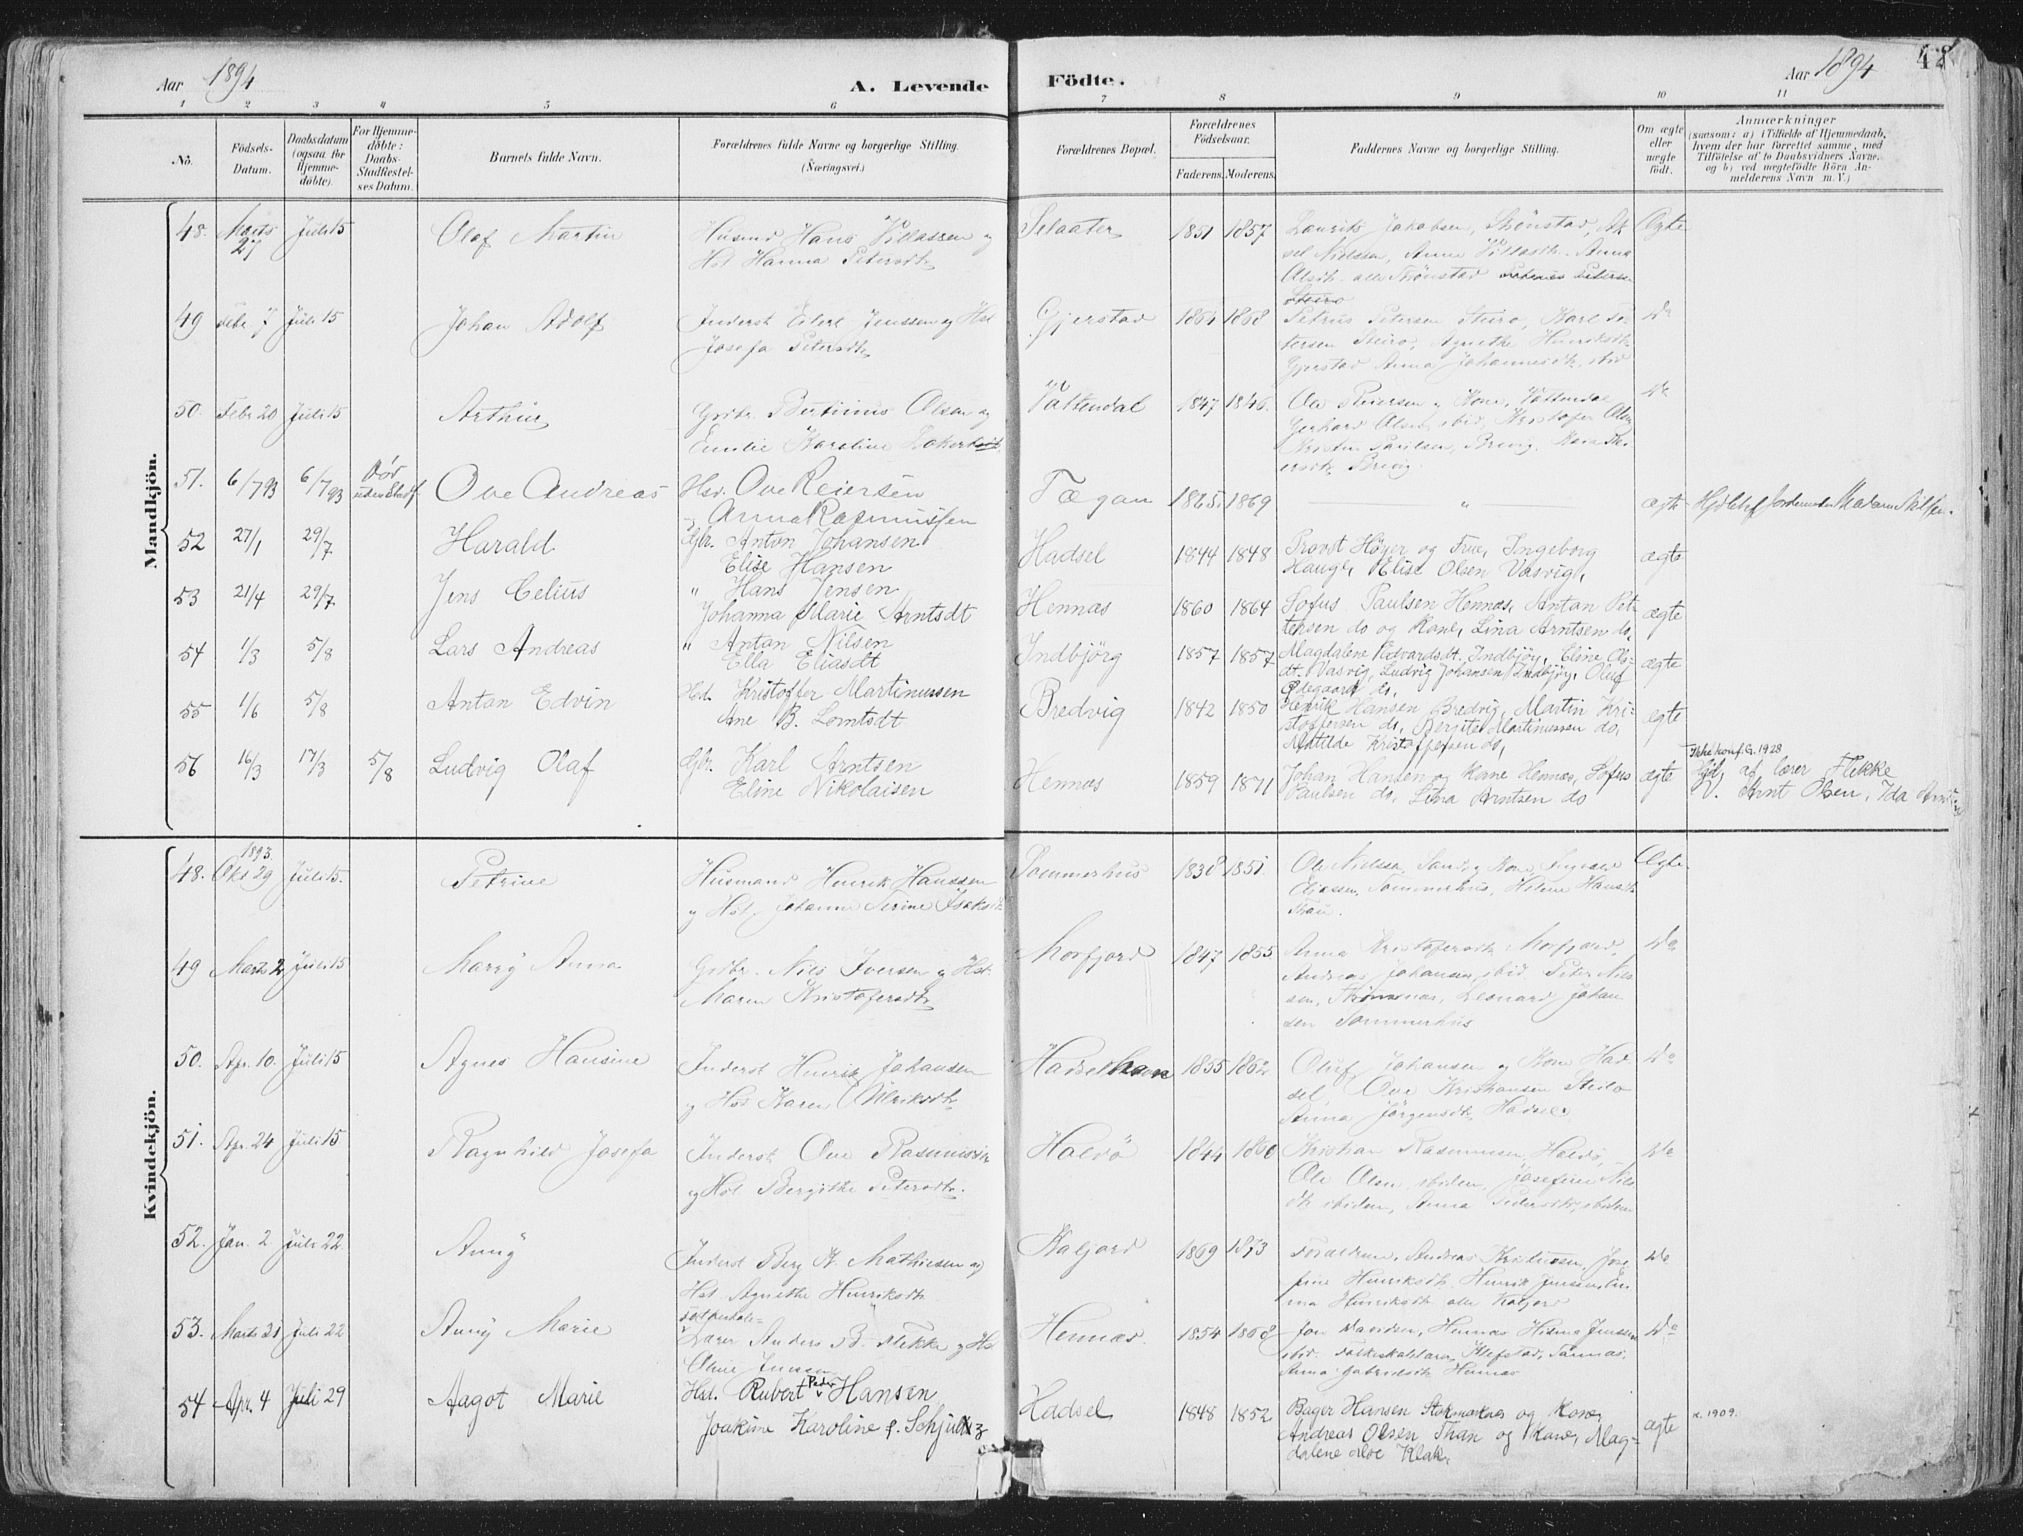 Aar 1894
A. Levende Födte.
Aar 1894
48
1 2 3 4 5 6 7 8 9 10 11
No.
Födsels-
Datum.
Daabsdatum
(ogsaa for
Hjemme-
døbte).
For Hjemme-
døbte:
Daabs-
Stadfæstel-
ses Datum.
Barnets fulde Navn.
Forældrenes fulde Navne og borgerlige Stilling.
(Næringsvei.)
Forældrenes Bopæl.
Forældrenes
Födselsaar.
Faderens. Moderens.
Faddernes Navne og borgerlige Stilling.
Om ægte
eller
uægte
født.
Anmærkninger
(saasom: a) i Tilfælde af Hjemmedaab,
hvem der har forrettet samme, med
Tilföielse af to Daabsvidners Navne,
og b) ved uægtefödte Börn An-
melderens Navn m. V.)
Mandkjön.
48. Marts 27 Juli 15 Olaf Martin Husmd Hans Villassen og
Hst Hanna Petersdt.
Selaater 1851 1857 Laurits Jakobsen, Strönstad,
Nielsen, Anne Villasdt. Anna
Olsdt. alle Strönstad
Ægte
49 Febr 7 Juli 15 Johan Adolf Inderst Eilert Jenssen og Hst
Josefa Petersdt.
Gjerstad 1864 1868 Petrus Petersen Steiro, Karl Pe-
tersen Steiro, Agnethe Henriksdt.
Gjerstad Anna Johannesdt. ibid
Do
50. Febr 20 Juli 15 Arthur Grdbr. Bertinus Olsen og
Emilie Karoline
Vattendal 1847 1846. Ole Reiersen og Kone, Vattendal
Gerhard Olsen ibid, Kristofer Olsen
Kristen Paulsen, Brevig.
Brevig.
Do
51. 6/7 93 6/7 93 Død uden Stadf. Ove Andreas Hsd. Ove Reiersen
og Anna Rasmussen
Tægan 1865. 1869 " ægte
52 27/1 29/7 Harald Gbr. Anton Johansen
Elise Hansen
Hadsel 1844 1848 Provst Höyer og Frue, Ingeborg
Hauge, Elise Olsen Vasvig,
ægte
53 21/4 29/7. Jens Celius " Hans Jensen
Johanna Marie Arntsdt
Hennæs 1860 1864 Sofus Paulsen Hennæs, Antan Pet-
tersen do og Kone, Lina Arntsen do.
ægte
54 1/3 5/8 Lars Andreas " Antan Nilsen
Ella Eliasdt
Indbjörg 1857 1857 Magdalene Edvardsdt. Indbjörg, Eline Ols-
dt. Vasvig, Ludvig Johansen Indbjörg, Oluf
Ödegaard do,
ægte
55 1/6 5/8 Antan Edvin Hsd. Kristoffer Martinussen
Ane B. Lorntsdt
Bredvig 1842 1850 Henrik Hansen Bredvig, Martin Kri-
stoffersen do, Bergite Martinussen do,
Matilde Kristoffersen do,
ægte
56 16/3 17/3 5/8 Ludvig Olaf Gbr. Karl Arntsen
Eline Nikolaisen
Hennæs 1859 1871 Johan Hansen og Kone Hennæs, Sofus
Paulsen do, Lina Arntsen do
ægte
Ikke konf. G. 1928
Hjd. af lærer Flekke
V. Arnt Olsen, Ida
Kvindekjön.
48. 1893. Okt 29 Juli 15. Petrine Husmand Henrik Hanssen
og Hst. Johanna Serine Isaksdt.
Sommerhus 1838 1851. Ole Nielssen, Sand og Kone,
Eliassen, Sommerhus, Helene Hansdt
Ægte.
49 Marts 2 Juli 15 Marry Anna Grdbr. Nils Iversen og Hst.
Maren Kristofersdt.
Morfjord 1847 1855 Anna Kristofersdt. Morfjord,
Andreas Johansen, ibid Peter Niel-
sen, Leonard Johan
sen Sommerhus
Do
50. Apr. 10. Juli 15 Agnes Hansine Inderst Henrik Johansen
og Hst Karen Ulriksdt.
Hadselhavn 1855 1862 Oluf Johansen og Kone Had
sel, Ove Kristiansen Steilo
Anna Jörgensdt. Hadsel
Do
51. Apr. 24 Juli 15 Ragnhild Josefa Inderst Ove Rasmussen
og Hst Bergithe Petersdt.
Haldö 1844 1860 Kristian Rasmussen, Haldö,
Ole Olsen ibidem, Josefine Niels
dt. ibidem, Anna Pedersdt, ibidem
Do
52. Jan. 2 Juli 22 Anny Inderst Berg K. Mathiesen og
Hst. Agnethe Henriksdt.
Kaljord 1869 1873 Forældrene, Andreas Kristensen, Jose
fine Henriksdt. Henrik Jenssen,
Henriksdt. alle Kaljord
Do
53. Marts 31 Juli 22 Anny Marie
Lærer Anders B. Flekke og Hst
Oline Jenssen
Hennæs. 1854 1868 Jon Davidsen, Hennæs Hilma Jenssen
ibid.
Anna Gabrielsdt. Hennæs
Do
54 Apr. 4 Juli 29 Aagot Marie Hsd. Rubert Peder Hansen
Joakime Karoline f. Schjultz
Hadsel 1848 1852 Bager Hansen Stokmarknes og Kone,
Andreas Olsen Than og Kone, Mag-
dalene Klak.
ægte
x. 1909.